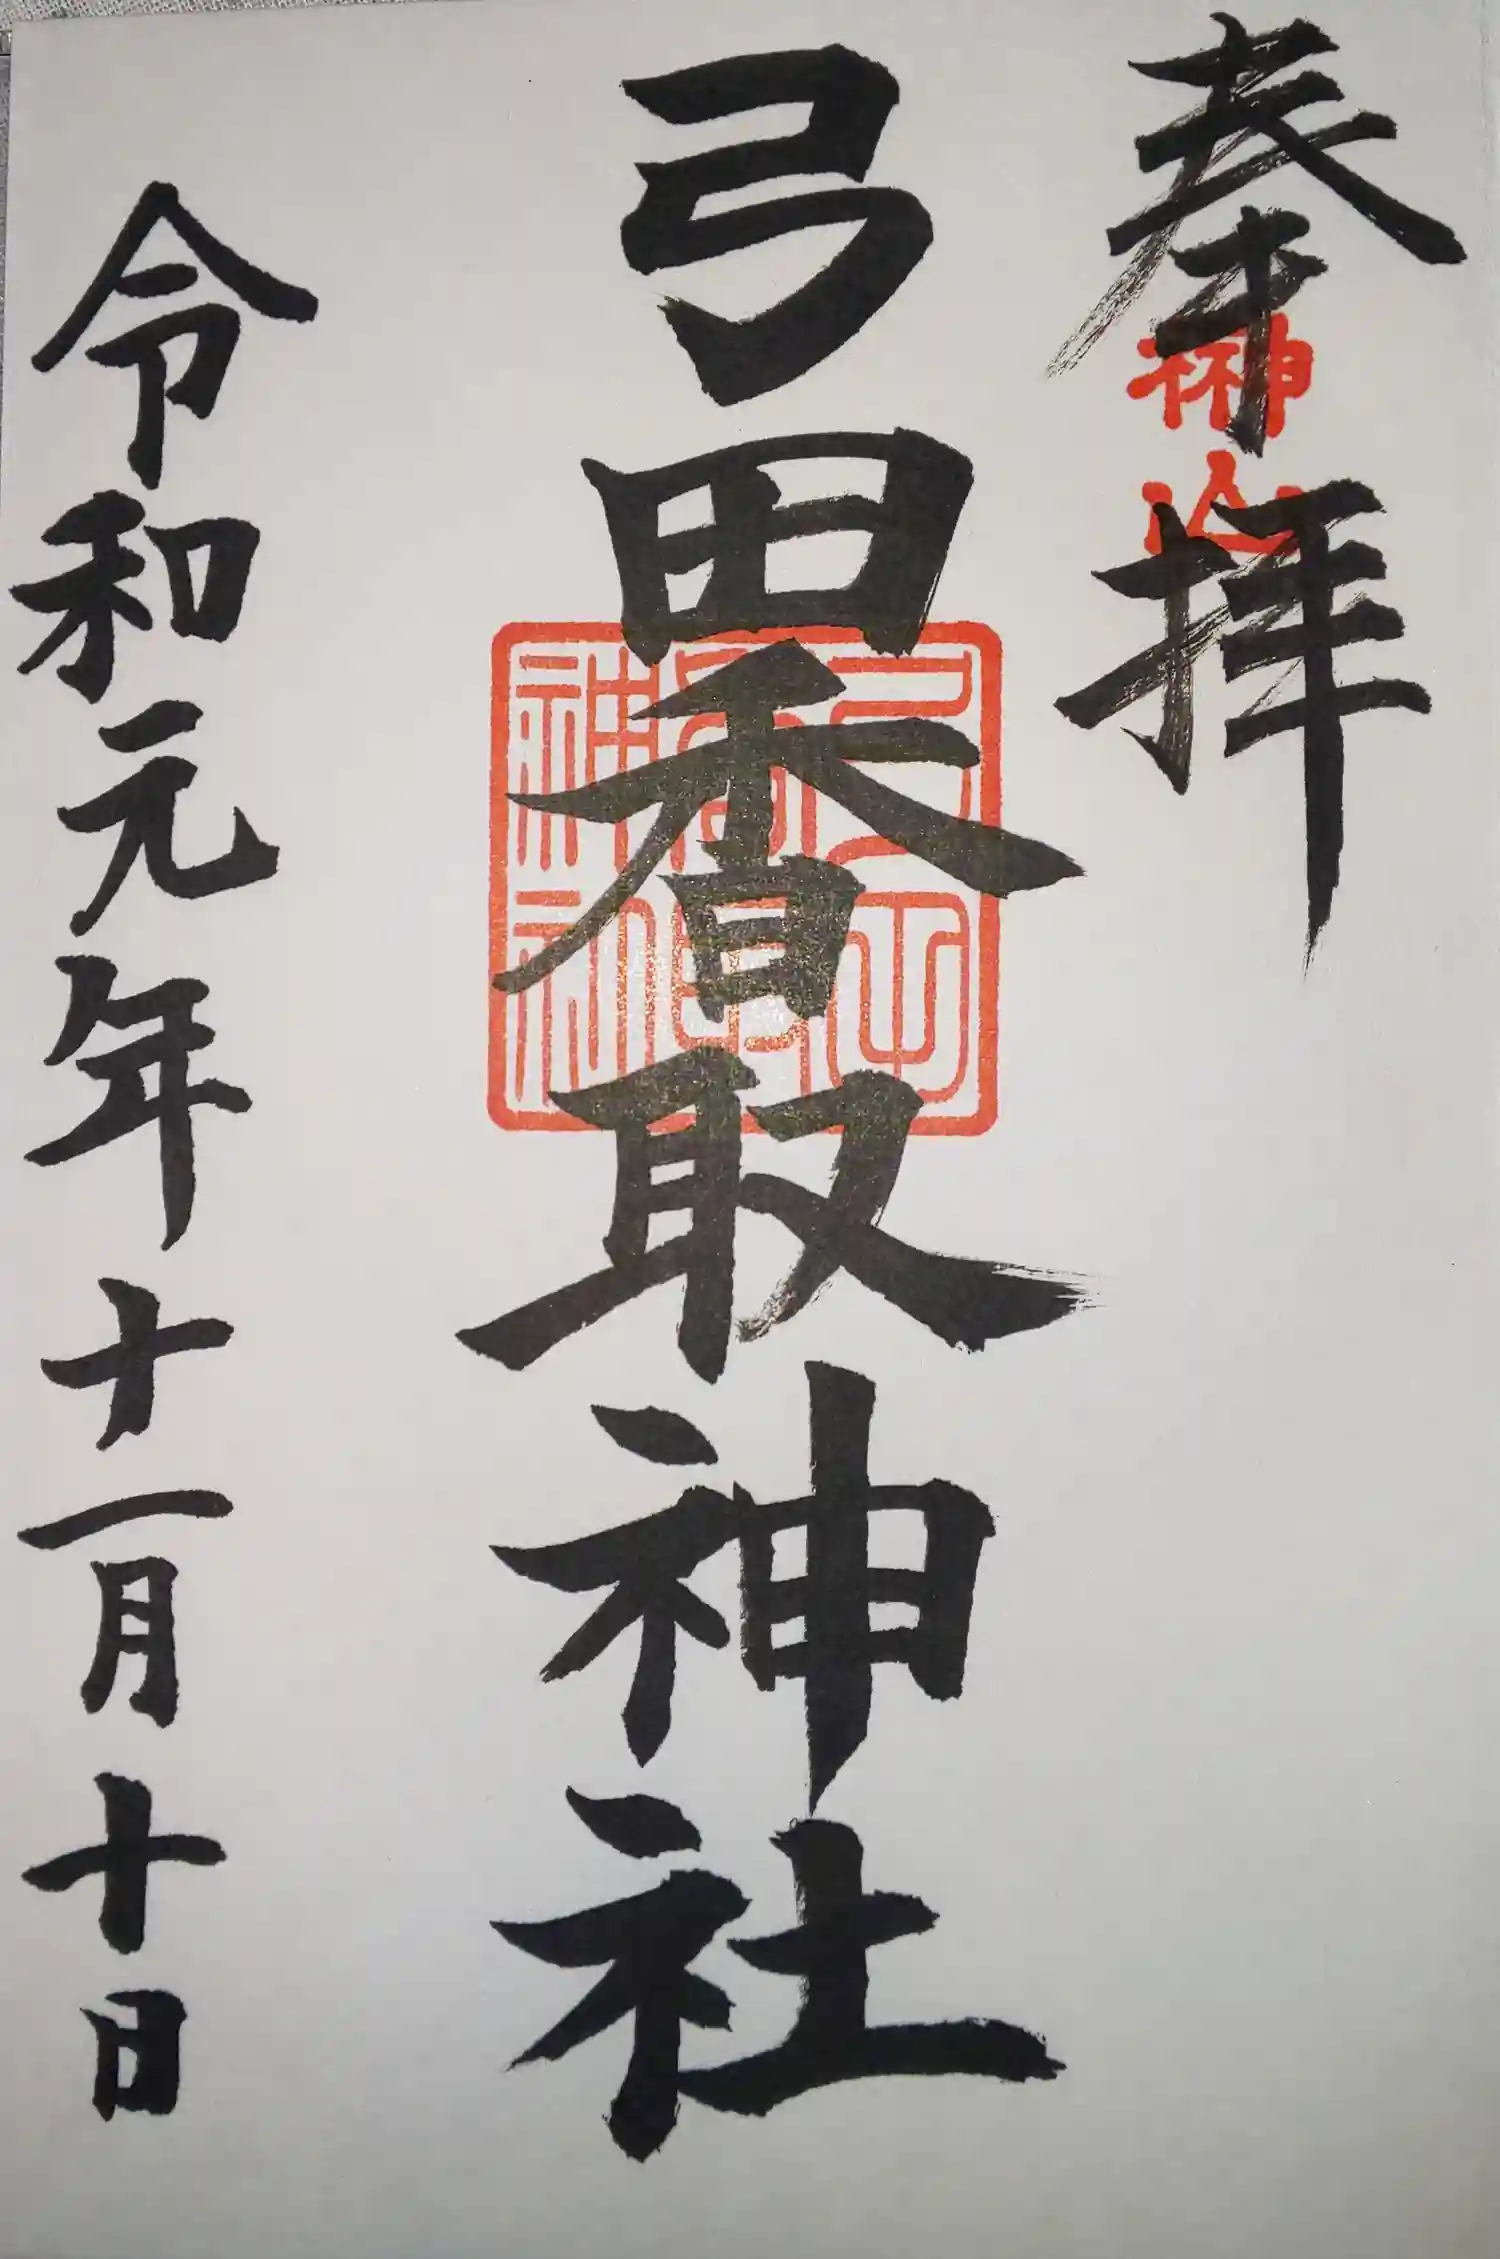 奉拝
榊山
弓田香取神社
令和元年十一月十日